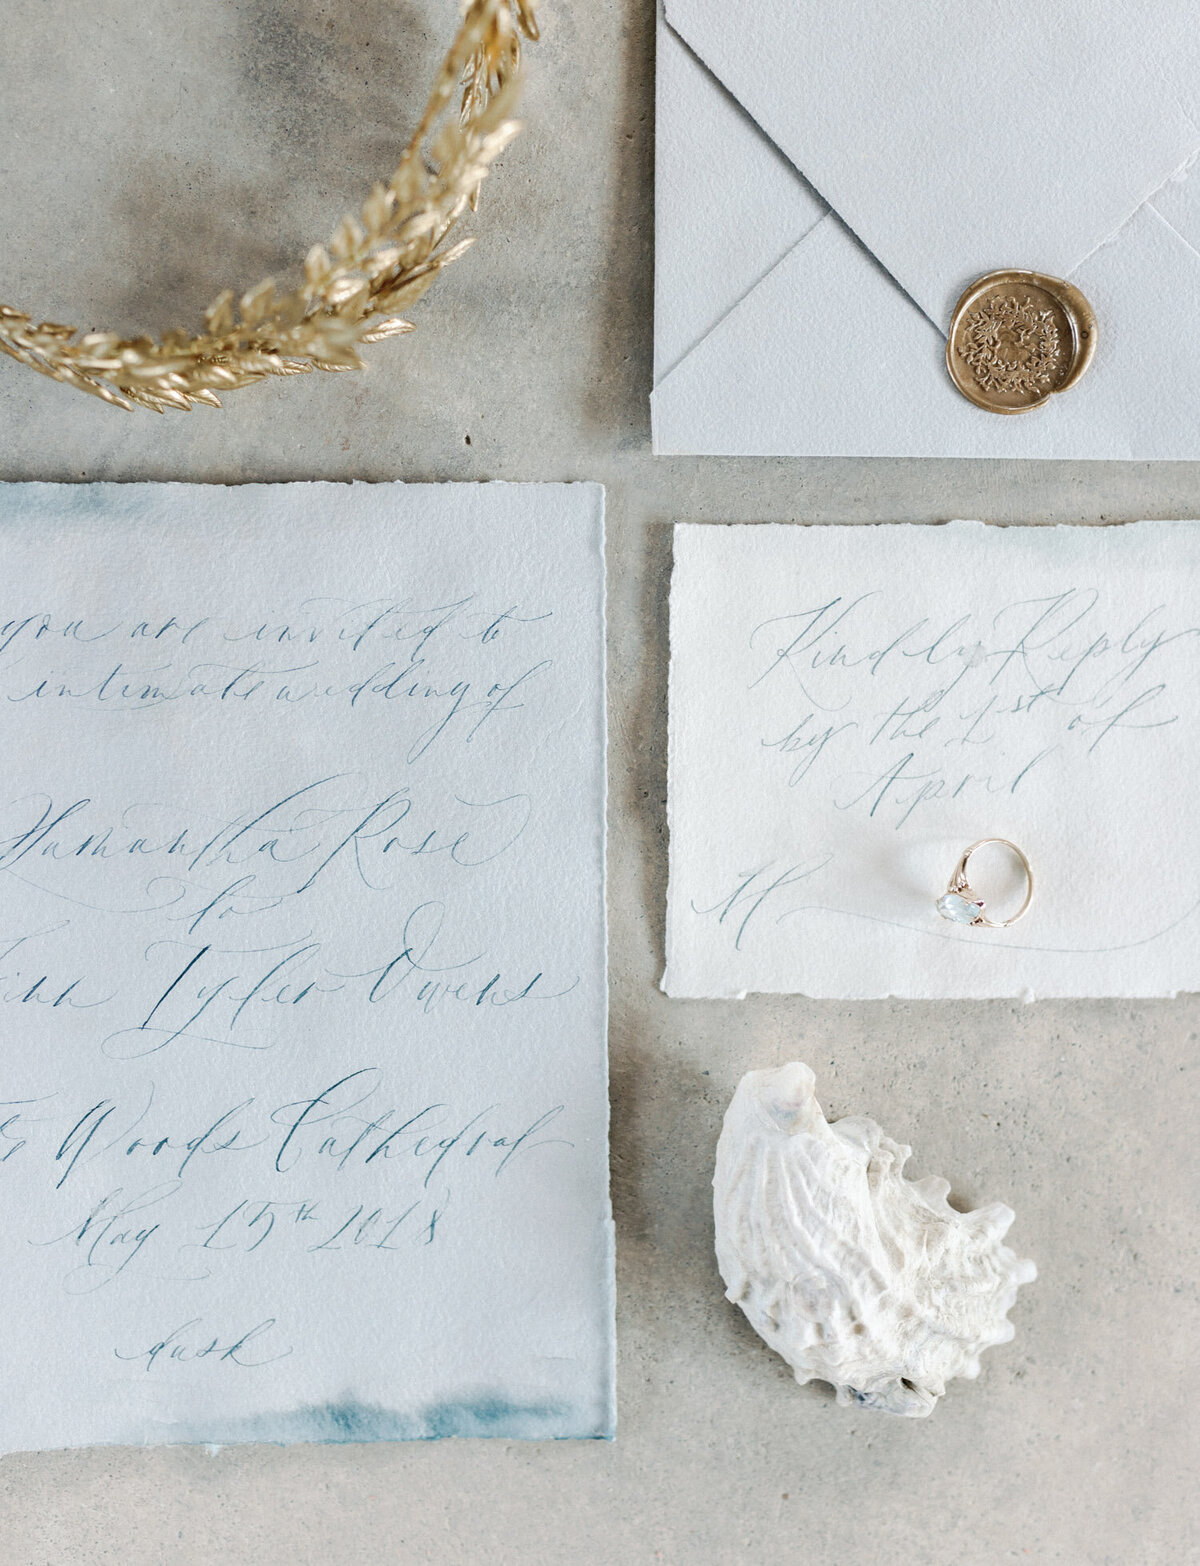 you are invited to
intimate wedding of
Samantha Rose
to
Tyler Owens
Woods Cathedral
May 15th 2018
dusk
Kindly Reply
by the 1st of
April
M